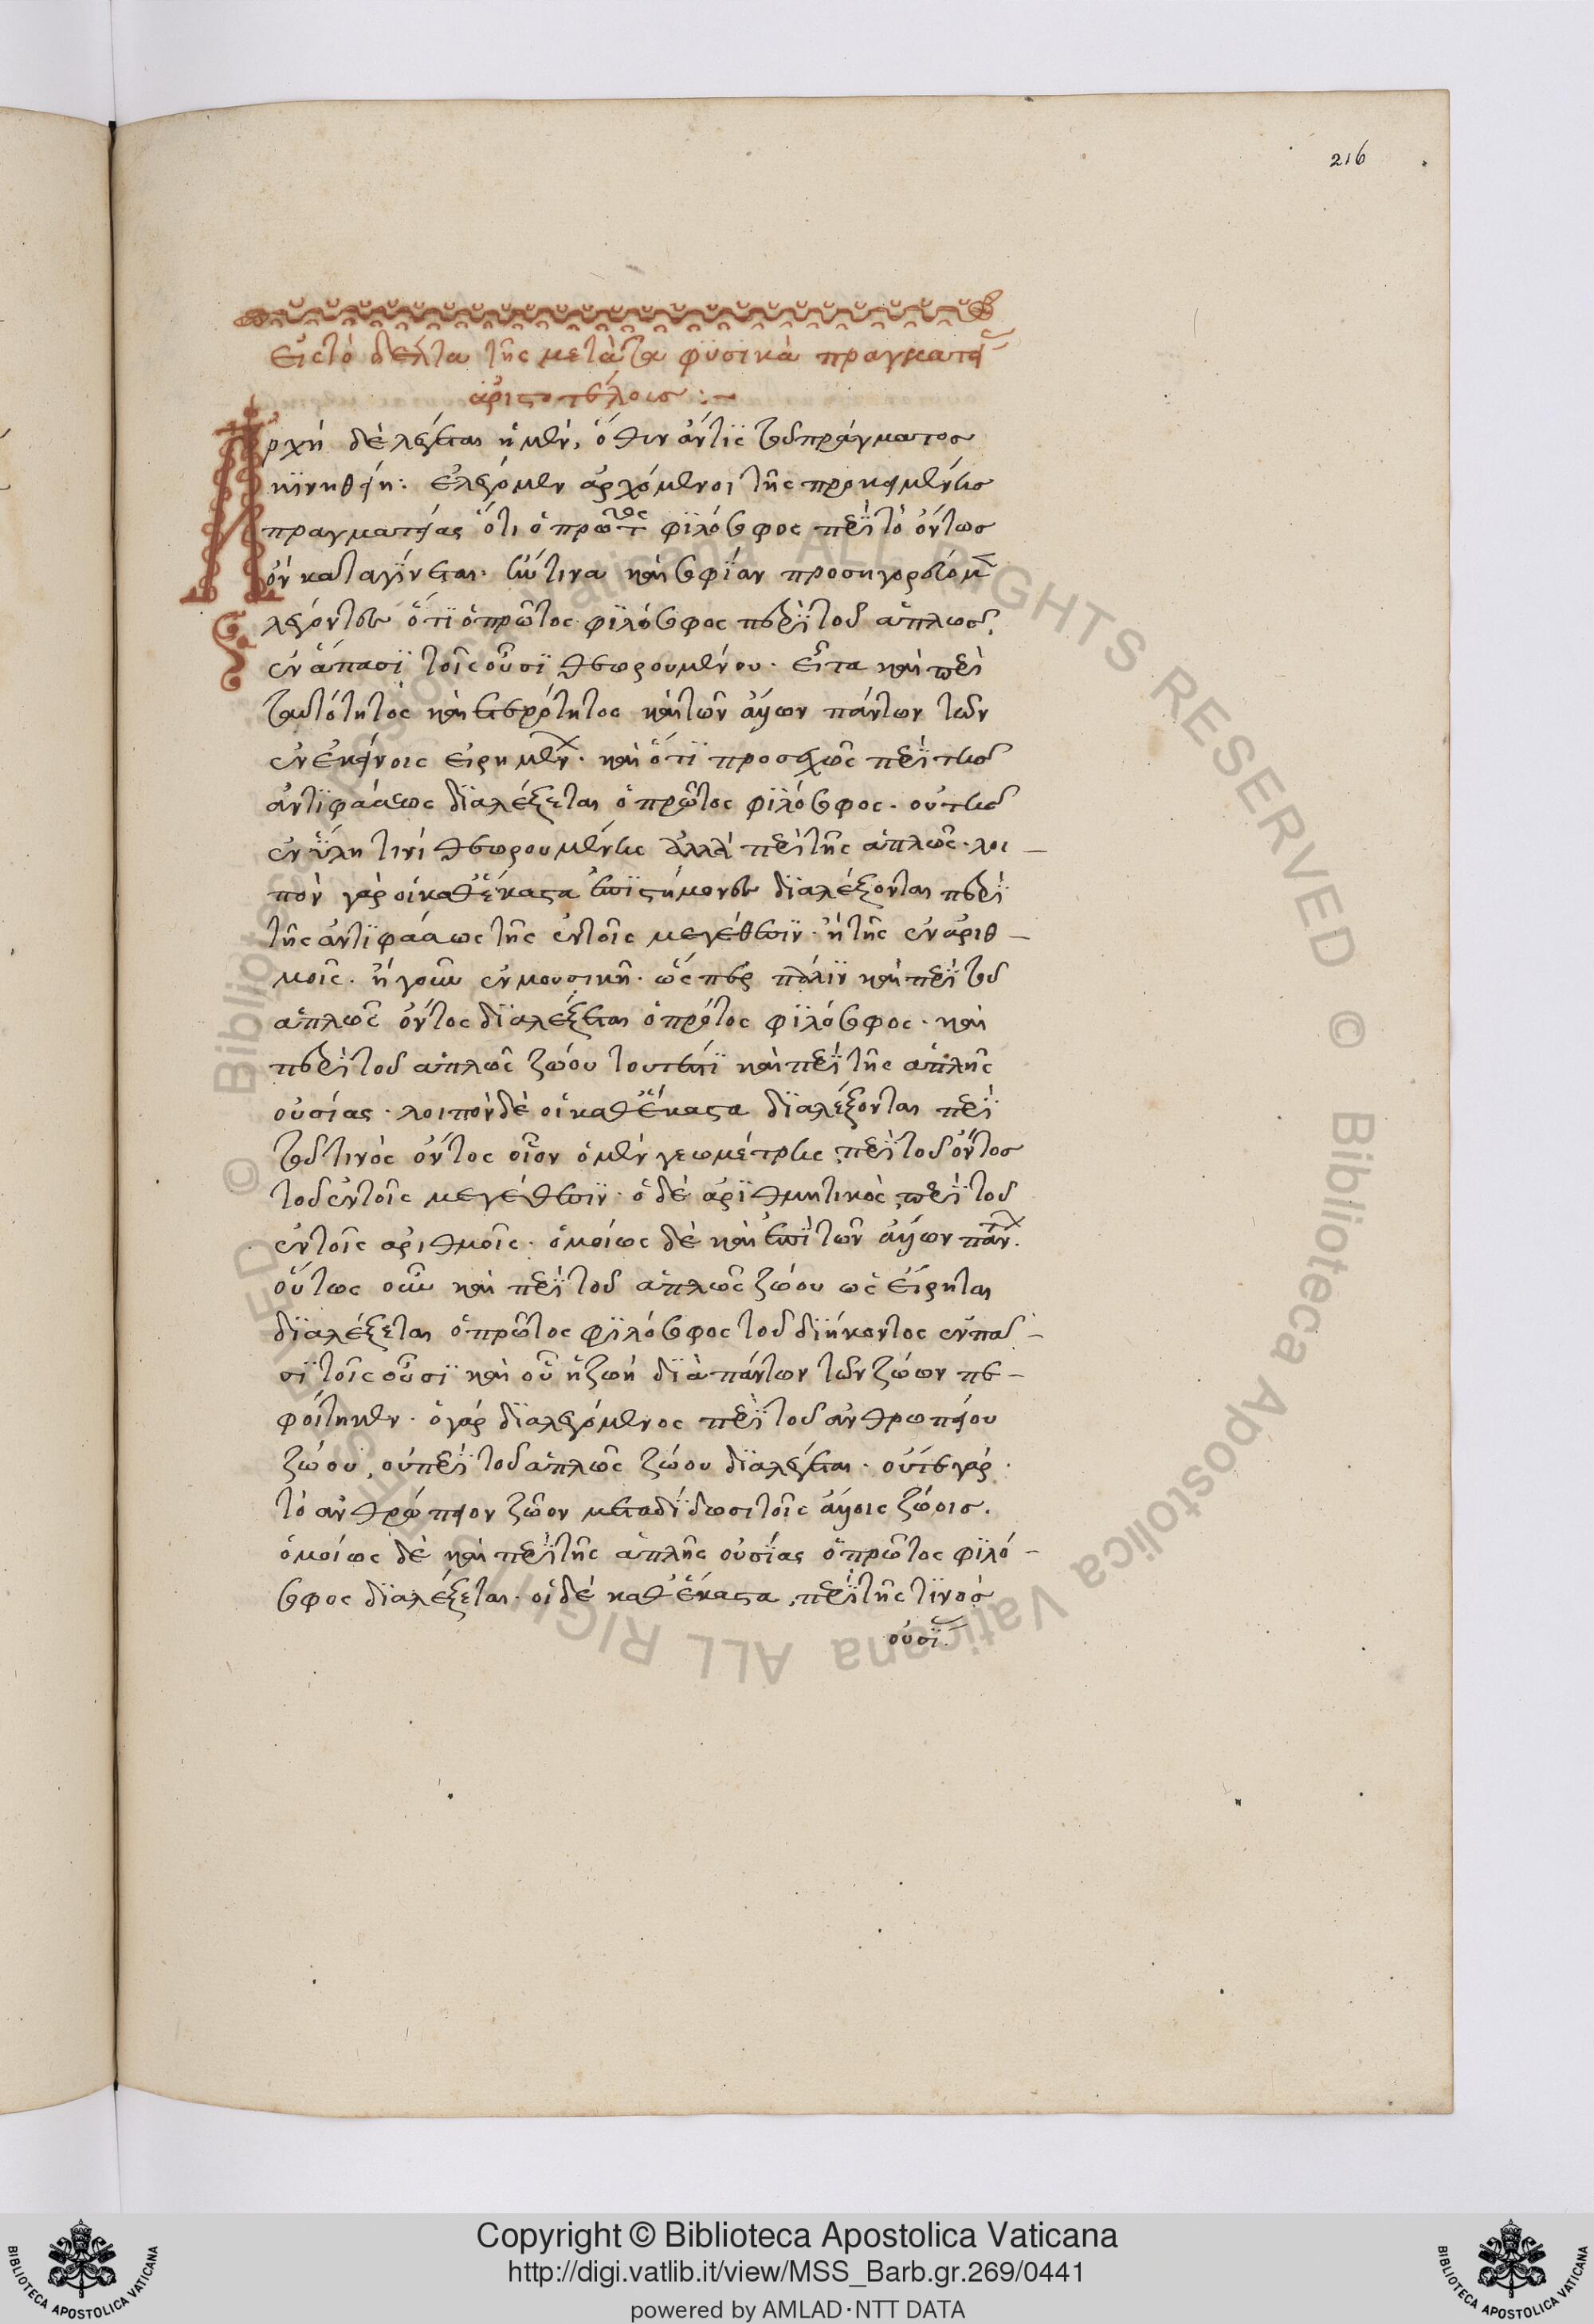 216
εἰς τὸ δέλτα τῆς μετὰ τὰ φϋσικὰ πραγματεί
ἀριστοτέλους :~
Ἀρχὴ δὲ λέγεται ἡ μὲν, ὅθεν ἄν τις τοῦ πράγματος
κϊνηθείη: ἐλέγομεν ἀρχόμενοι τῆς προκειμένης
πραγματείας ὅτι ὁ πρῶτος φϊλόσοφος περῒ τὸ ὄντως
ὂν καταγίνεται. ἥντινα καὶ σοφίαν προσηγορεύομ
λέγοντες ὅτϊ ὁ πρῶτος φϊλόσοφος περῒ τοῦ ἁπλῶς,
ἐν ἅπασϊ τοῖς οὖσϊ θεωρουμένου. εἶτα καὶ περὶ
ταυτότητος καὶ ἑτερότητος καὶ τῶν ἄλλων πάντων τῶν
ἐν ἐκείνοις εἰρημέν. καὶ ὅτι προσεχῶς περῒ τῆς
ἀντϊφάσεως δϊαλέξεται ὁ πρῶτος φϊλόσοφος. οὐ τῆς
ἐν ὕλη τινὶ θεωρουμένης ἀλλὰ περὶ τῆς ἁπλῶς. λοι –
πὸν γὰρ οἱ καθ' ἕκαστα ἐπϊστήμονες δϊαλέξονται περῒ
τῆς ἀντϊφάσεως τῆς ἐν τοῖς μεγέθεσϊν. ἢ τῆς ἐν ἀριθ –
μοῖς. ἢ γοῦν ἐν μουσικῆ. ὥσπερ πάλϊν καὶ περῒ τοῦ
ἁπλῶς ὄντος δϊαλέξεται ὁ πρῶτος φϊλόσοφος. καὶ
περῒ τοῦ ἁπλῶς ζώου τουτέστϊ καὶ περῒ τῆς ἁπλῆς
οὐσίας. λοιπὸν δὲ οἱ καθ' ἕκαστα δϊαλέξονται περῒ
τοῦ τινὸς ὄντος οἷον ὁ μὲν γεωμέτρης, περῒ τοῦ ὄντος
τοῦ ἐν τοῖς μεγέθεσϊν. ὁ δὲ ἀρϊθμητικὸς, περῒ τοῦ
ἐν τοῖς ἀριθμοῖς. ὁμοίως δὲ καὶ ἐπὶ τῶν ἄλλων πάν.
οὕτως οὖν καὶ περῒ τοῦ ἁπλῶς ζώου ὡς εἴρηται
δϊαλέξεται ὁ πρῶτος φϊλόσοφος τοῦ διήκοντος ἐν πᾶ –
σϊ τοῖς οὖσϊ καὶ οὗ ἡ ζωὴ δϊὰ πάντων τῶν ζώων πε –
φοίτηκεν. ὁ γὰρ δϊαλεγόμενος περῒ τοῦ ἀνθρωπείου
ζώου, οὐ περῒ τοῦ ἁπλῶς ζώου δϊαλέγεται. οὔτε γὰρ
τὸ ἀνθρώπειον ζῶον μεταδίδωσι τοῖς ἄλλοις ζώοις.
ὁμοίως δὲ καὶ περῒ τῆς ἁπλῆς οὐσίας ὁ πρῶτος φϊλό –
σοφος δϊαλέξεται. οἱ δὲ καθ' ἕκαστα, περῒ τῆς τϊνος
οὐσϊ
Copyright © Biblioteca Apostolica Vaticana
http://digi.vatlib.it/view/MSS_Barb.gr.269/0441
powered by AMLAD·NTT DATA
BIBLIOTECA APOSTOLICA VATICANA
BIBLIOTECA APOSTOLICA VATICANA
© Biblioteca Apostolica Vaticana ALL RIGHTS RESERVED © Biblioteca Apostolica Vaticana ALL RIGHTS RESERVED